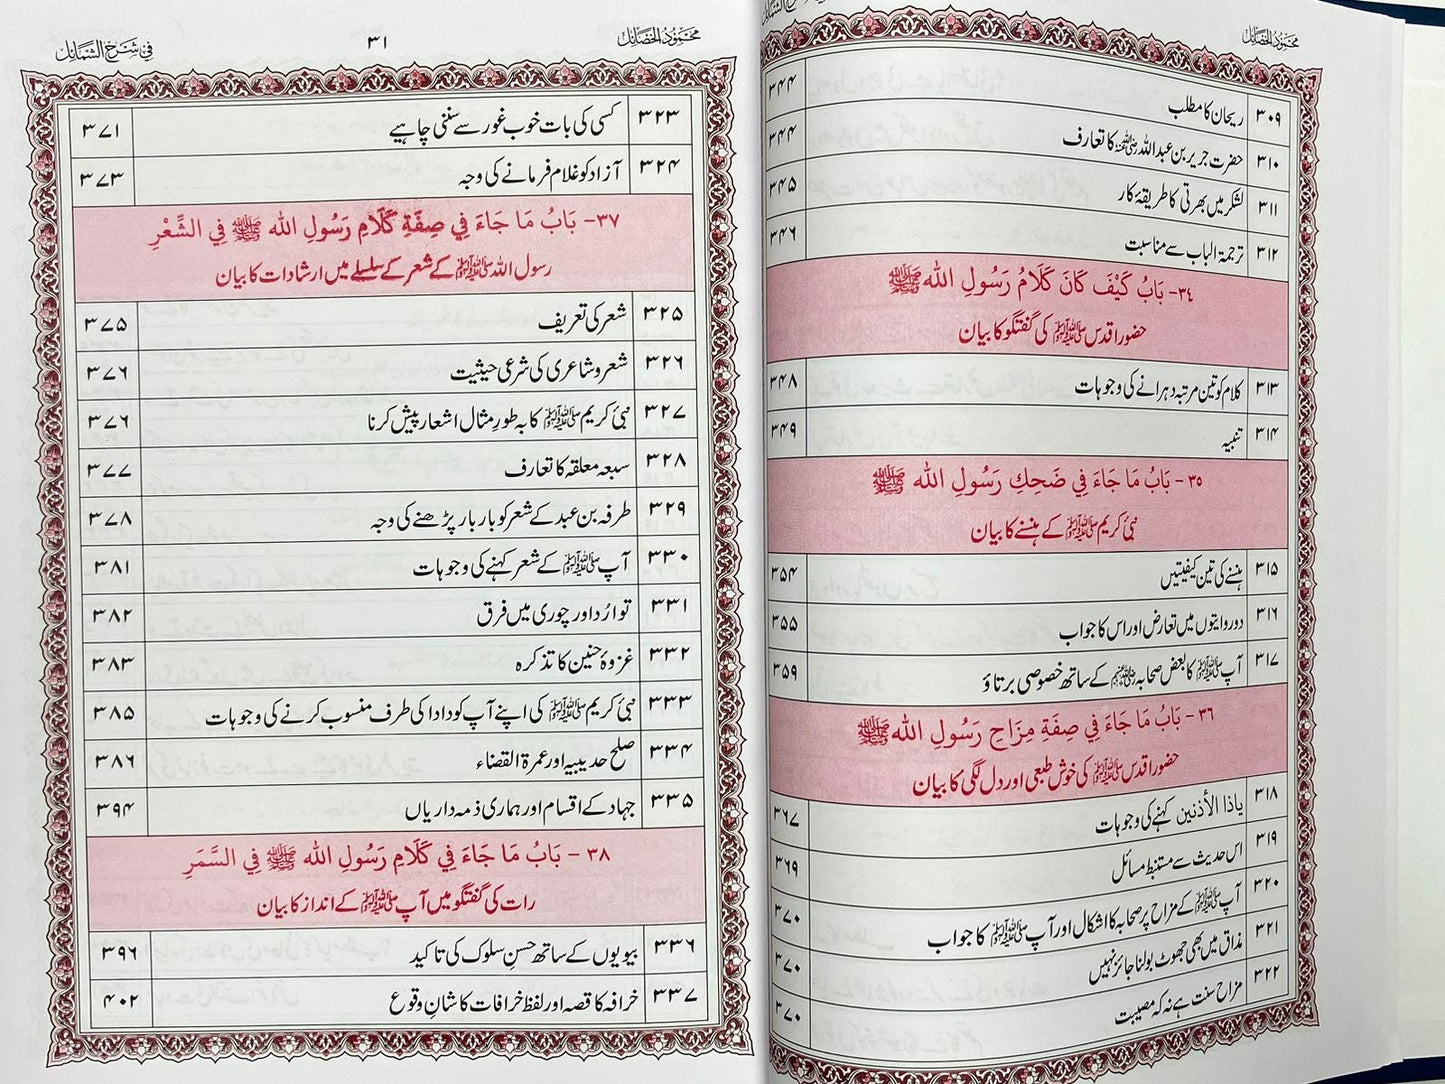 محمود الخصائل
۳۰۹ ریحان کا مطلب ۳۴۴
۳۱۰ حضرت جریر بن عبداللہ رضی اللہ عنہ کا تعارف ۳۴۴
۳۱۱ لشکر میں بھرتی کا طریقۂ کار ۳۴۵
۳۱۲ ترجمۃ الباب سے مناسبت ۳۴۶
۳٤- بَابُ كَيْفَ كَانَ كَلَامُ رَسُولِ اللہ ﷺ
حضور اقدس ﷺ کی گفتگو کا بیان
۳۱۳ کلام کو تین مرتبہ دہرانے کی وجوہات ۳۴۸
۳۱۴ تنبیہ ۳۴۹
۳٥- بَابُ مَا جَاءَ فِي ضَحِكِ رَسُولِ اللہ ﷺ
نبی کریم ﷺ کے ہنسنے کا بیان
۳۱۵ ہنسنے کی تین کیفیتیں ۳۵۴
۳۱۶ دو روایتوں میں تعارض اور اس کا جواب ۳۵۵
۳۱۷ آپ ﷺ کا بعض صحابہ رضی اللہ عنہم کے ساتھ خصوصی برتاؤ ۳۵۹
۳٦- بَابُ مَا جَاءَ فِي صِفَةِ مِزَاحِ رَسُولِ اللہ ﷺ
حضور اقدس ﷺ کی خوش طبعی اور دل لگی کا بیان
۳۱۸ یاذا الأذنین کہنے کی وجوہات ۳۶۷
۳۱۹ اس حدیث سے مستنبط مسائل ۳۶۹
۳۲۰ آپ ﷺ کے مزاح پر صحابہ کا اشکال اور آپ ﷺ کا جواب ۳۷۰
۳۲۱ مذاق میں بھی جھوٹ بولنا جائز نہیں ۳۷۰
۳۲۲ مزاح سنت ہے نہ کہ مصیبت ۳۷۰
محمود الخصائل ۳۱ في شرح الشمائل
۳۲۳ کسی کی بات خوب غور سے سننی چاہیے ۳۷۱
۳۲۴ آزاد کو غلام فرمانے کی وجہ ۳۷۳
۳۷- بَابُ مَا جَاءَ فِي صِفَةِ كَلَامِ رَسُولِ اللہ ﷺ فِي الشِّعْرِ
رسول اللہ ﷺ کے شعر کے سلسلے میں ارشادات کا بیان
۳۲۵ شعر کی تعریف ۳۷۵
۳۲۶ شعر و شاعری کی شرعی حیثیت ۳۷۶
۳۲۷ نبی کریم ﷺ کا بہ طورِ مثال اشعار پیش کرنا ۳۷۶
۳۲۸ سبعہ معلقہ کا تعارف ۳۷۷
۳۲۹ طرفہ بن عبد کے شعر کو بار بار پڑھنے کی وجہ ۳۷۸
۳۳۰ آپ ﷺ کے شعر کہنے کی وجوہات ۳۸۱
۳۳۱ توارُد اور چوری میں فرق ۳۸۲
۳۳۲ غزوۂ حنین کا تذکرہ ۳۸۳
۳۳۳ نبی کریم ﷺ کی اپنے آپ کو دادا کی طرف منسوب کرنے کی وجوہات ۳۸۵
۳۳۴ صلح حدیبیہ اور عمرۃ القضاء ۳۸۶
۳۳۵ جہاد کے اقسام اور ہماری ذمہ داریاں ۳۹۴
۳۸ - بَابُ مَا جَاءَ فِي كَلَامِ رَسُولِ اللہ ﷺ فِي السَّمَرِ
رات کی گفتگو میں آپ ﷺ کے انداز کا بیان
۳۳۶ بیویوں کے ساتھ حسنِ سلوک کی تاکید ۳۹۶
۳۳۷ خرافہ کا قصہ اور لفظ خرافات کا شانِ وقوع ۴۰۲